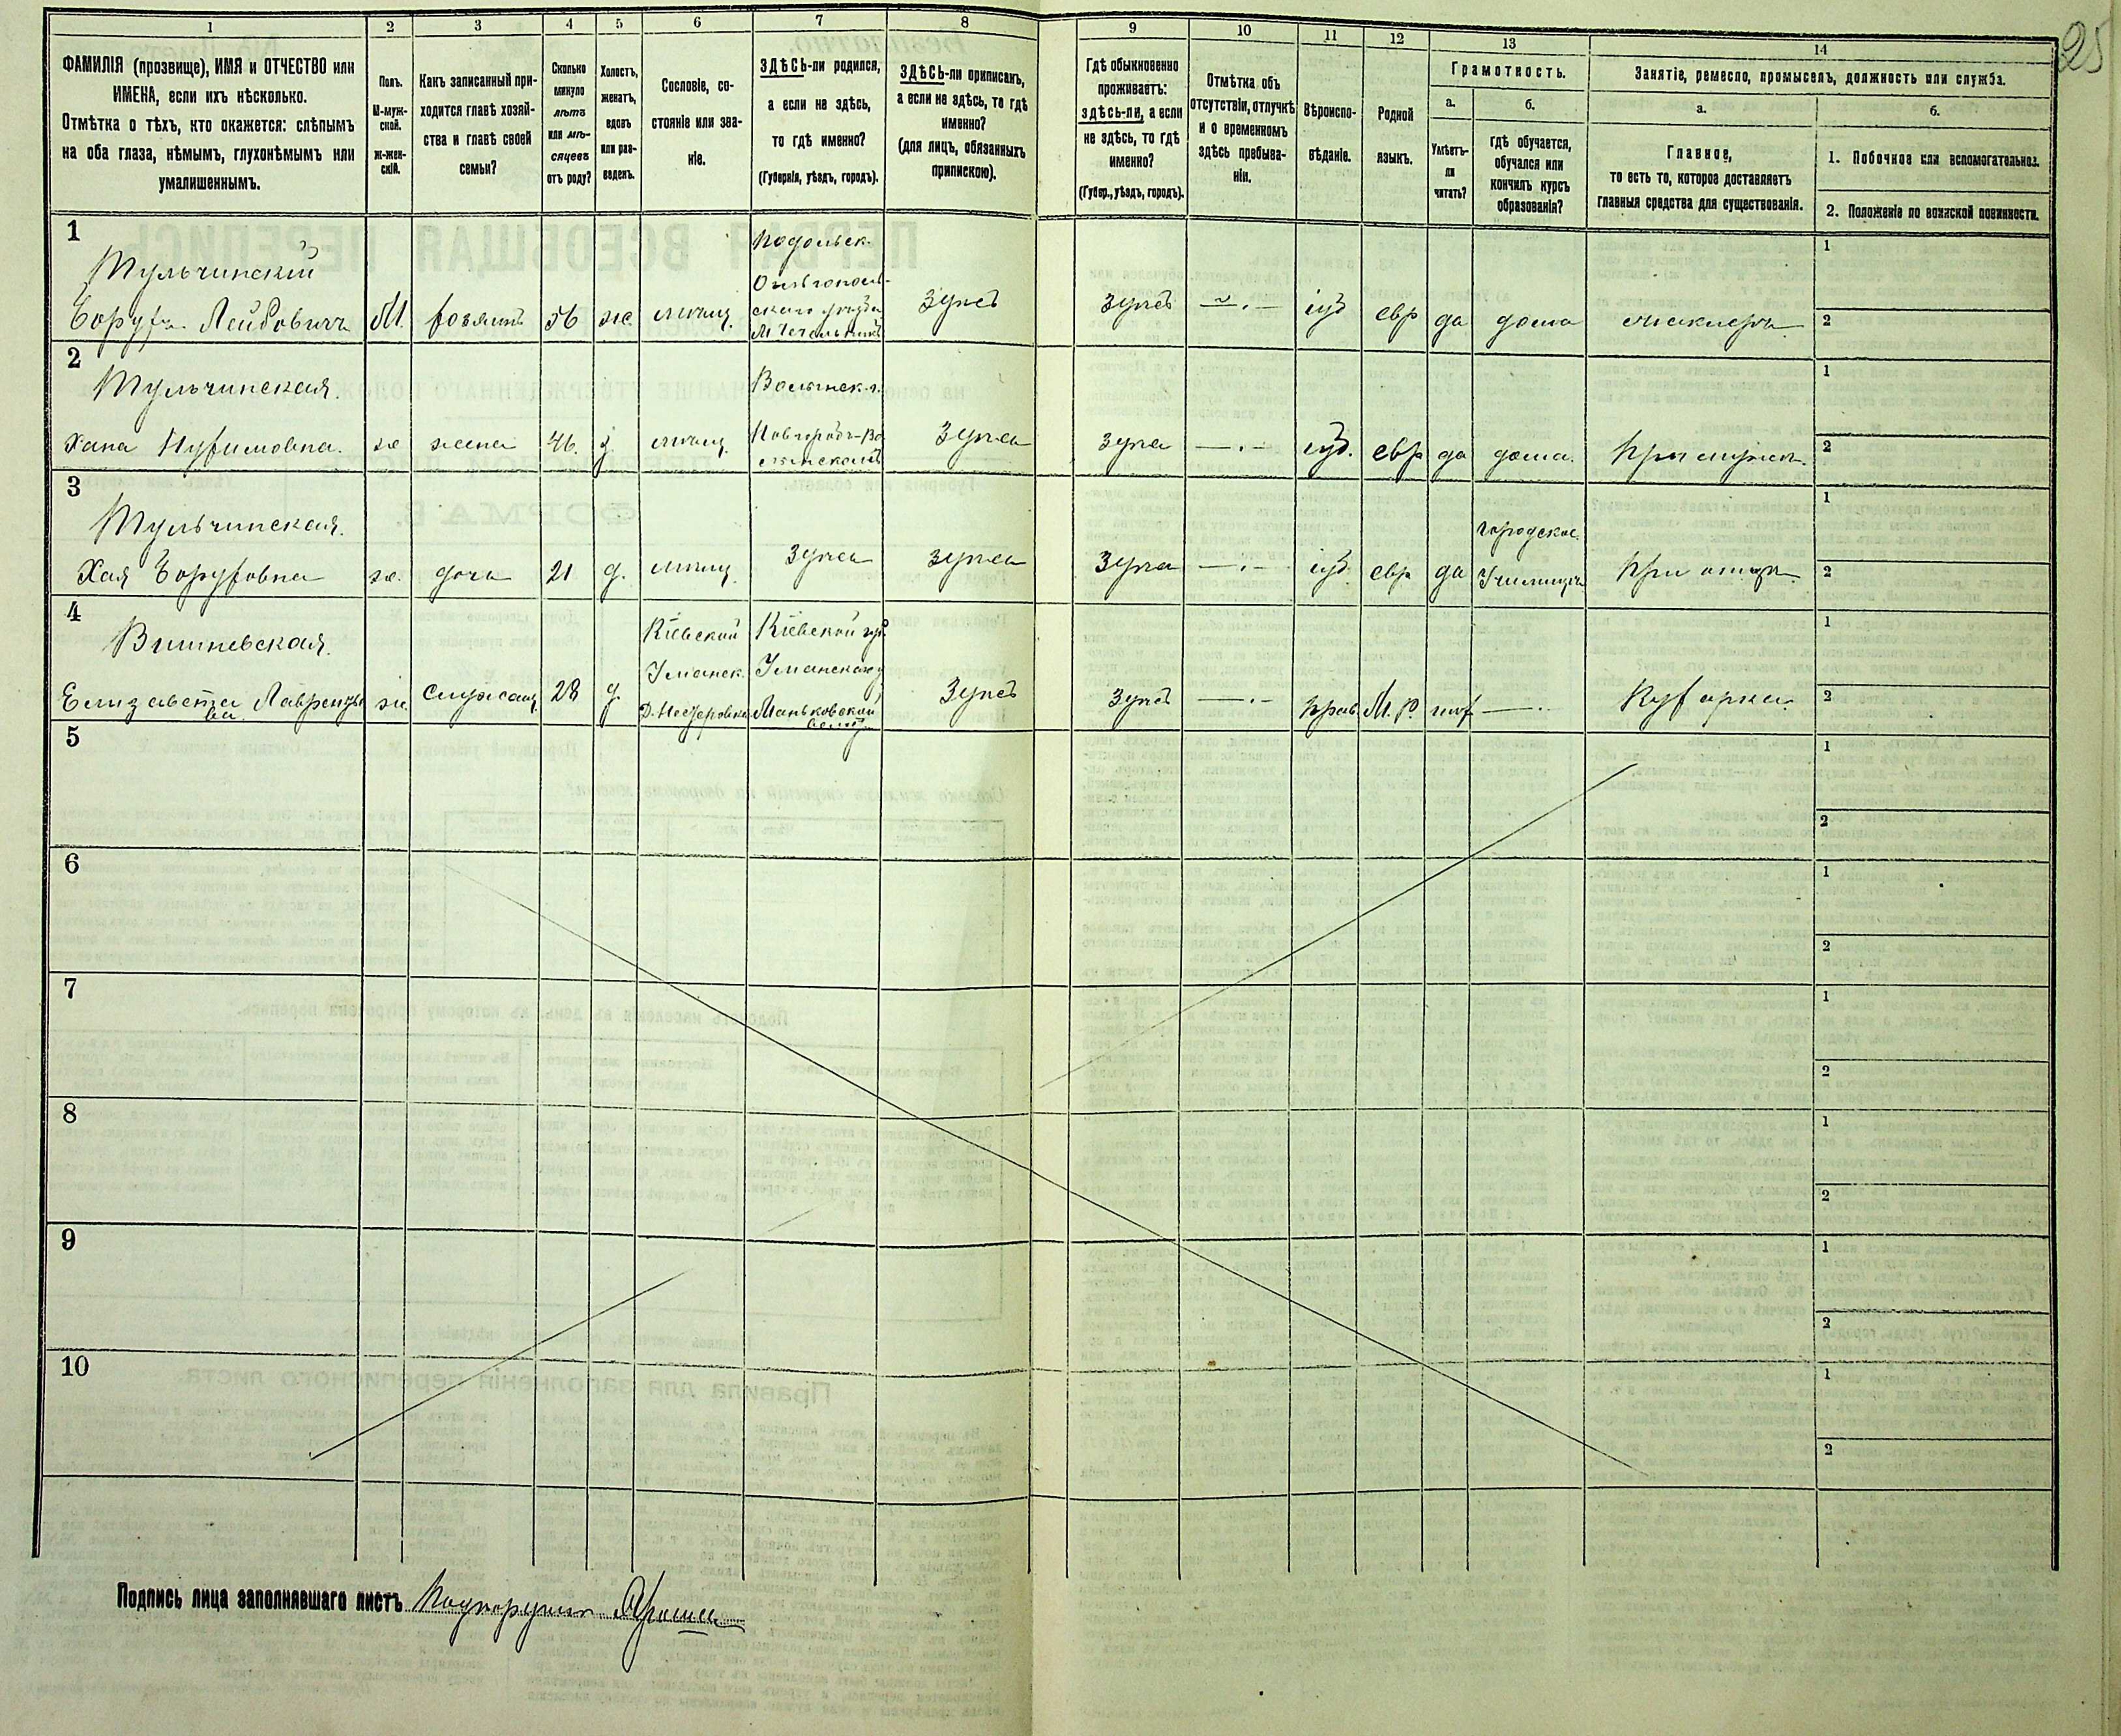 25
1 2 3 4 5 6 7 8 9 10 11 12 13 14
ФАМИЛІЯ (прозвище), ИМЯ и ОТЧЕСТВО или
ИМЕНА, если ихъ нѣсколько.
Отмѣтка о тѣхъ, кто окажется: слѣпымъ
на оба глаза, нѣмымъ, глухонѣмымъ или
умалишеннымъ.
Полъ.
М-муж-
ской.
Ж-жен-
скій.
Какъ записанный при-
ходится главѣ хозяй-
ства и главѣ своей
семьи?
Сколько
минуло
лѣтъ
или мѣ-
сяцевъ
отъ роду?
Холостъ,
женатъ,
вдовъ
или раз-
веденъ.
Сословіе, со-
стояніе или зва-
ніе.
ЗДѢСЬ-ли родился,
а если не здѣсь,
то гдѣ именно?
(Губернія, уѣздъ, городъ).
ЗДѢСЬ-ли приписанъ,
а если не здѣсь, то гдѣ
именно?
(для лицъ, обязанныхъ
припискою).
Гдѣ обыкновенно
проживаетъ:
ЗДѢСЬ-ЛИ, а если
не здѣсь, то гдѣ
именно?
(Губер., уѣздъ, городъ).
Отмѣтка объ
отсутствіи, отлучкѣ
и о временномъ
здѣсь пребыва-
ніи.
Вѣроиспо-
вѣданіе.
Родной
языкъ.
Грамотность.
а.
Умѣетъ-
ли
читать?
б.
гдѣ обучается,
обучался или
кончилъ курсъ
образованія?
Занятіе, ремесло, промыселъ, должность или служба.
а.
Главное,
то есть то, которое доставляетъ
главныя средства для существованія.
б.
1. Побочное или вспомогательное.
2. Положеніе по воинской повинности.
1
Тульчинскій
Борухъ Лейбовичъ М. хозяинъ 56 ж. мѣщ.
Подольск.
Ольгополь-
скаго уѣзда
М Чечельникъ
здѣсь здѣсь —.— іуд евр да дома маклеръ
1
2
2
Тульчинская.
Хана Нухимовна. ж жена 46. з. мѣщ.
Волынск. г.
Новгородъ-Во
лынскаго
здѣсь здѣсь —.— іуд. евр да дома. при мужѣ.
1
2
3
Тульчинская.
Хая Боруховна ж. дочь 21 д. мѣщ. здѣсь здѣсь здѣсь —.— іуд. евр да
городское
Училище
при отцѣ
1
2
4
Вишневская.
Елизавета Лаврентье
ва ж. служащ. 28 д.
Кіевской
Уманск.
Кіевской губ.
Уманскаго у
Маньковской
волос.
здѣсь здѣсь —.— прав М. Р. нѣт —.— Кухарка.
1
2
5
1
2
6
1
2
7
1
2
8
1
2
9
1
2
10
1
2
Подпись лица заполнявшаго листъ